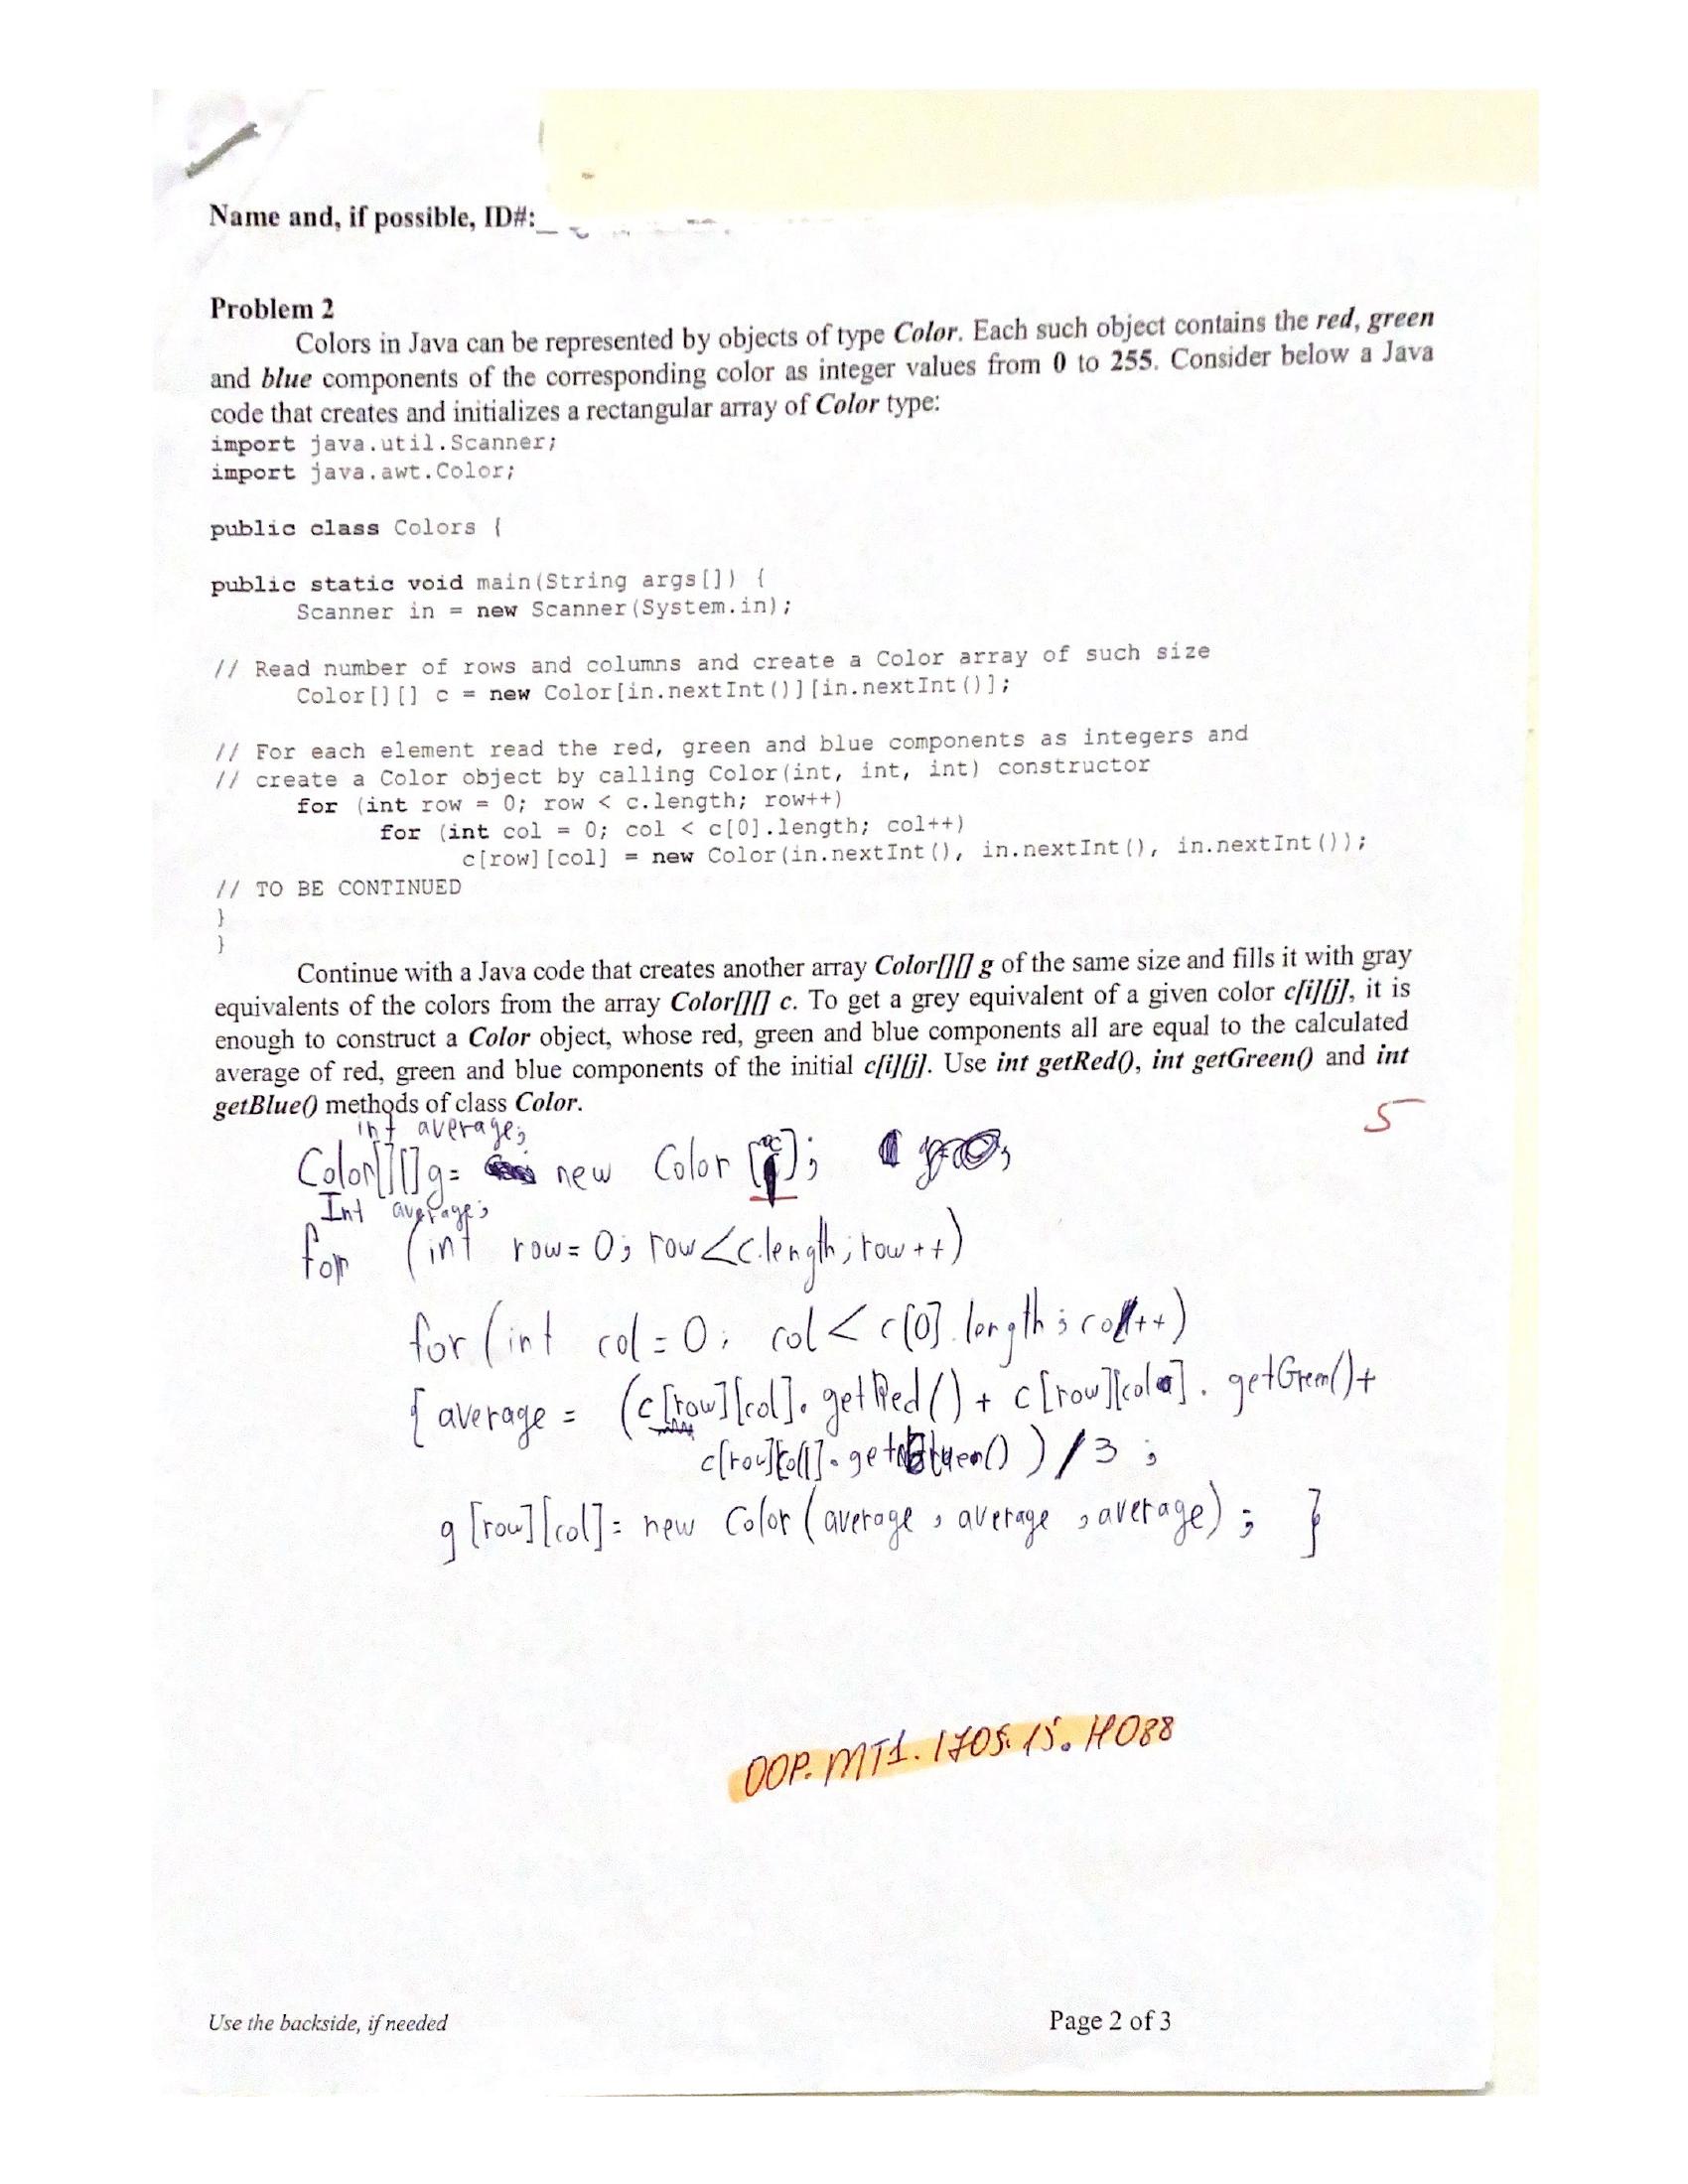 Name and, if possible, ID#:
Problem 2
Colors in Java can be represented by objects of type Color. Each such object contains the red, green
and blue components of the corresponding color as integer values from 0 to 255. Consider below a Java
code that creates and initializes a rectangular array of Color type:
import java.util.Scanner;
import java.awt.Color;
public class Colors {
public static void main(String args[]) {
Scanner in = new Scanner(System.in);
// Read number of rows and columns and create a Color array of such size
Color[][] c = new Color[in.nextInt()][in.nextInt()];
// For each element read the red, green and blue components as integers and
// create a Color object by calling Color(int, int, int) constructor
for (int row = 0; row < c.length; row++)
for (int col = 0; col < c[0].length; col++)
c[row][col] = new Color(in.nextInt(), in.nextInt(), in.nextInt());
// TO BE CONTINUED
}
}
Continue with a Java code that creates another array Color[][] g of the same size and fills it with gray
equivalents of the colors from the array Color[][] c. To get a grey equivalent of a given color c[i][j], it is
enough to construct a Color object, whose red, green and blue components all are equal to the calculated
average of red, green and blue components of the initial c[i][j]. Use int getRed(), int getGreen() and int
getBlue() methods of class Color.
5
int average;
Color[][]g= new Color [c];
Int average;
for (int row=0; row<c.length; row++)
for (int col=0; col<c[0].length; col++)
{ average = (c[row][col].getRed()+ c[row][col].getGreen()+
c[row][col].get )/3;
g[row][col]= new Color (average, average, average); }
OOP. MT1. 1705. 15. H088
Use the backside, if needed
Page 2 of 3